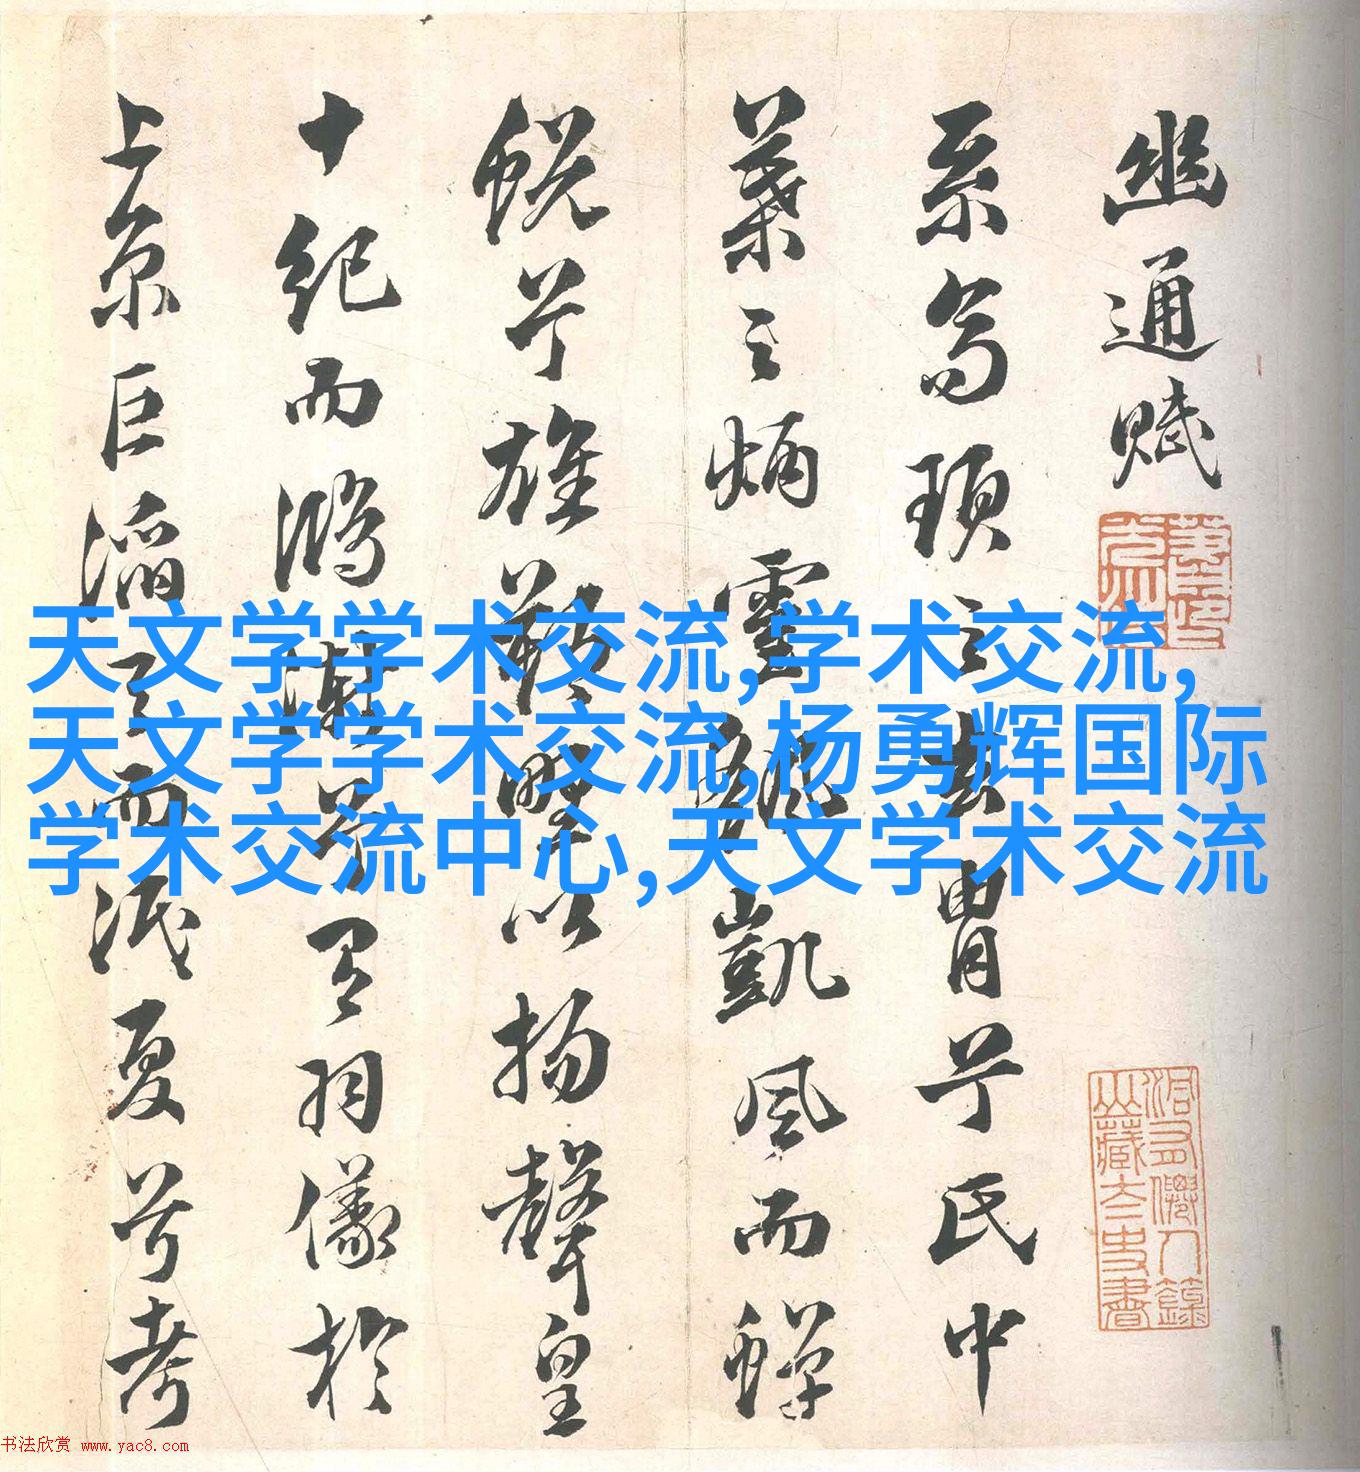 幽通賦
系高頊之玄冑兮氏中
葉之炳靈颻凱風而蟬
蛻兮雄朔野以揚聲皇
十紀而鴻漸兮有羽儀於
上京巨滔天而泯夏兮考
天文学学术交流,学术交流,
天文学学术交流,杨勇辉国际
学术交流中心,天文学术交流
书法欣赏 www.yac8.com